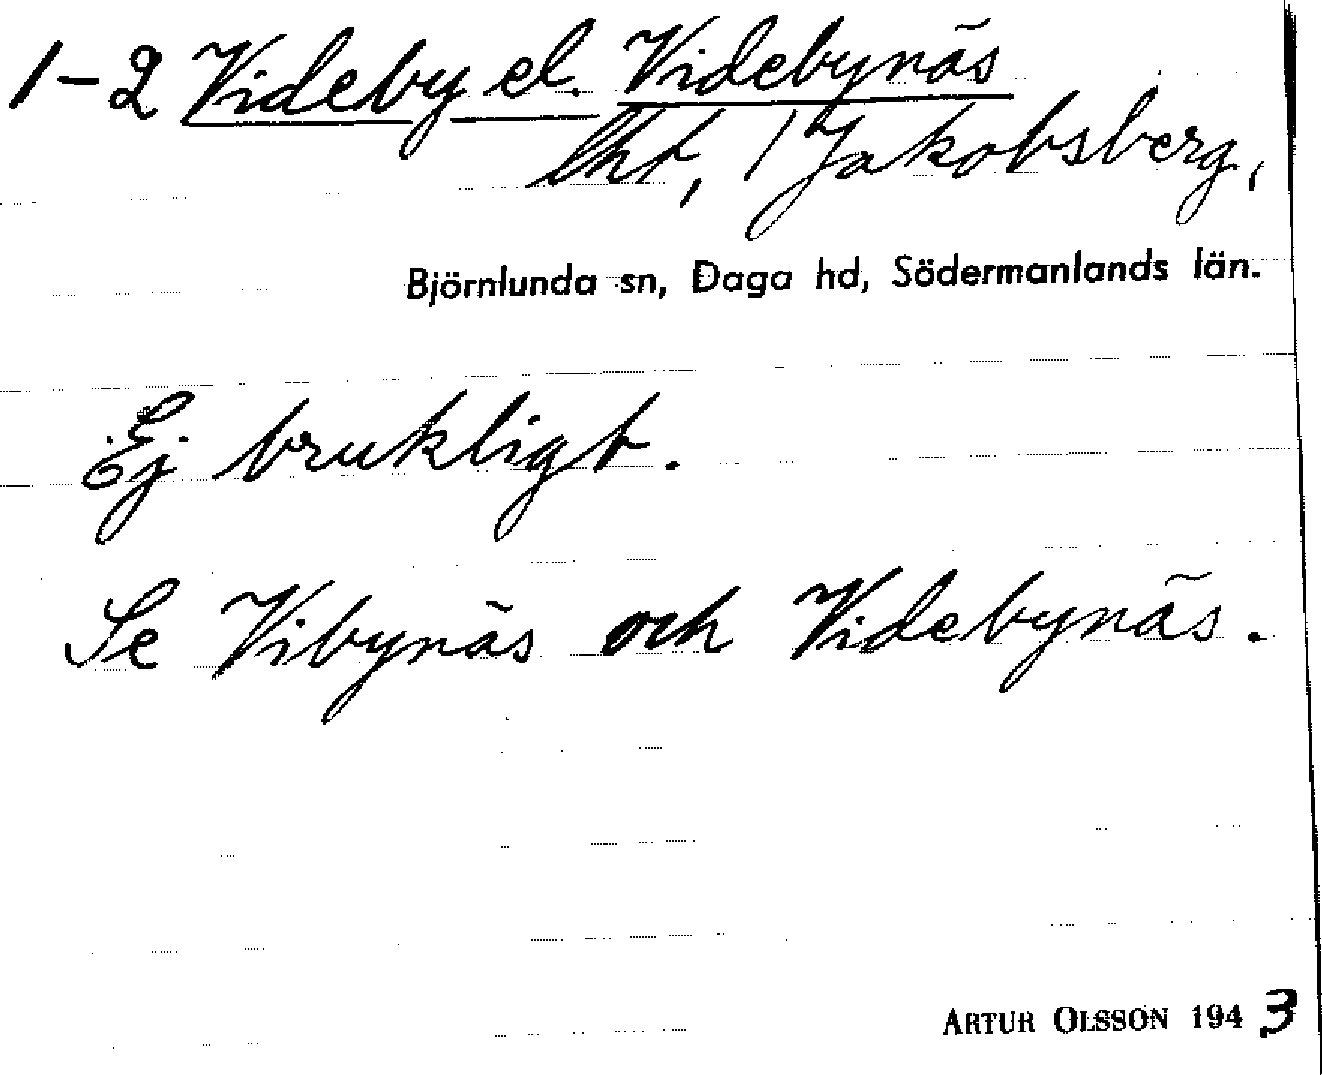 1-2 Videby el. Videbynäs
lht, / Jakobsberg,
Björnlunda sn, Daga hd, Södermanlands län.
Ej brukligt.
Se Vibynäs och Videbynäs.
ARTUR OLSSON 1943